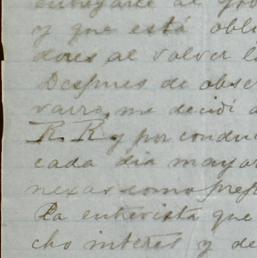 entregarle al gob
y que está obli
dores al volver l
Despues de obser
varro, me decidí a
R. R. y por conduc
cada dia mayor
nexas como pres
La entrevista que
cho interes y de